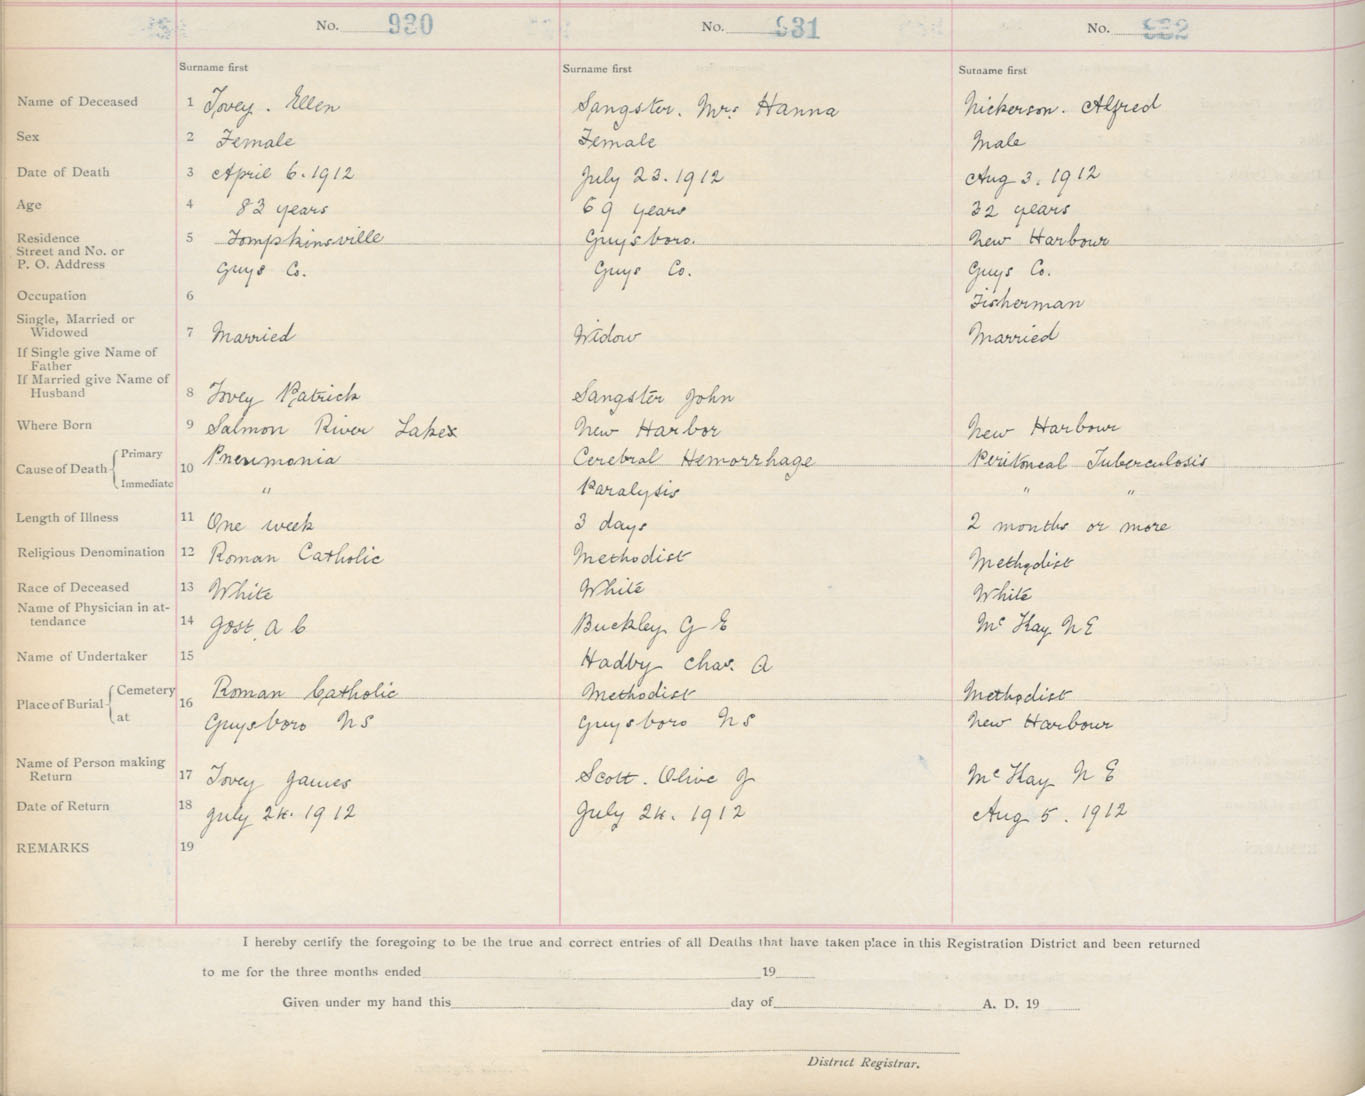 No. 930 No. 931 No. 932
Surname first Surname first Surname first
Name of Deceased 1 Tovey. Ellen Sangster. Mrs Hanna Nickerson. Alfred
Sex 2 Female Female Male
Date of Death 3 April 6. 1912 July 23. 1912 Aug 3. 1912
Age 4 83 years 69 years 32 years
Residence 5 Tompkinsville Guysboro. New Harbour
Street and No. or
P. O. Address Guys Co. Guys Co. Guys Co.
Occupation 6 Fisherman
Single, Married or
Widowed 7 Married Widow Married
If Single give Name of
Father
If Married give Name of
Husband 8 Tovey Patrick Sangster John
Where Born 9 Salmon River Lakes New Harbor New Harbour
Cause of Death Primary 10 Pneumonia Cerebral Hemorrhage Peritoneal Tuberculosis
Immediate " Paralysis " "
Length of Illness 11 One week 3 days 2 months or more
Religious Denomination 12 Roman Catholic Methodist Methodist
Race of Deceased 13 White White White
Name of Physician in at-
tendance 14 Jost. A C Buckley G E Mc Kay N E
Name of Undertaker 15 Hadby Chas. A
Place of Burial Cemetery 16 Roman Catholic Methodist Methodist
at Guysboro N S Guysboro N S New Harbour
Name of Person making
Return 17 Tovey James Scott. Olive J Mc Kay N E
Date of Return 18 July 24. 1912 July 24. 1912 Aug 5. 1912
REMARKS 19
I hereby certify the foregoing to be the true and correct entries of all Deaths that have taken place in this Registration District and been returned
to me for the three months ended 19
Given under my hand this day of A. D. 19
District Registrar.